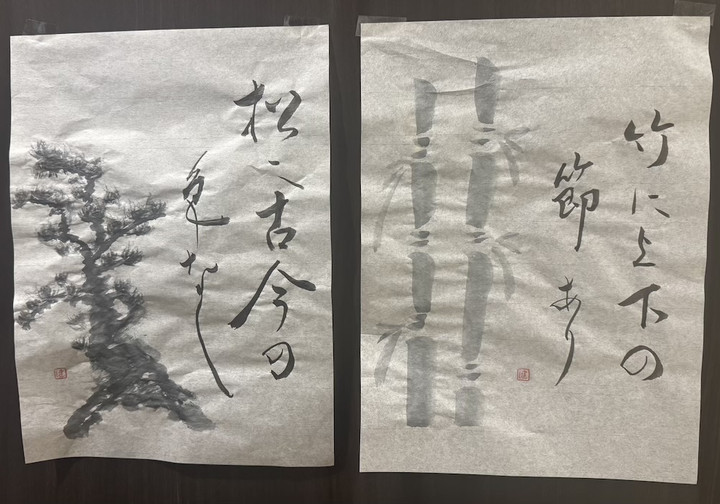 松ニ古今の
色なし
竹に上下の
節あり